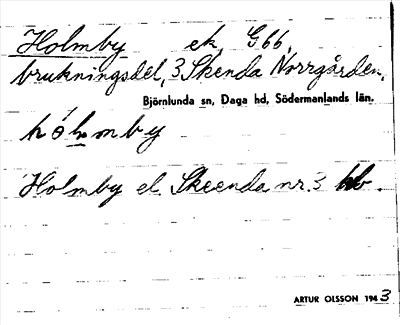 Holmby ek. G66,
brukningsdel, 3 Skenda Norrgården.
Björnlunda sn, Daga hd, Södermanlands län.
Holmby el. Skeenda nr. 3
ARTUR OLSSON 1943